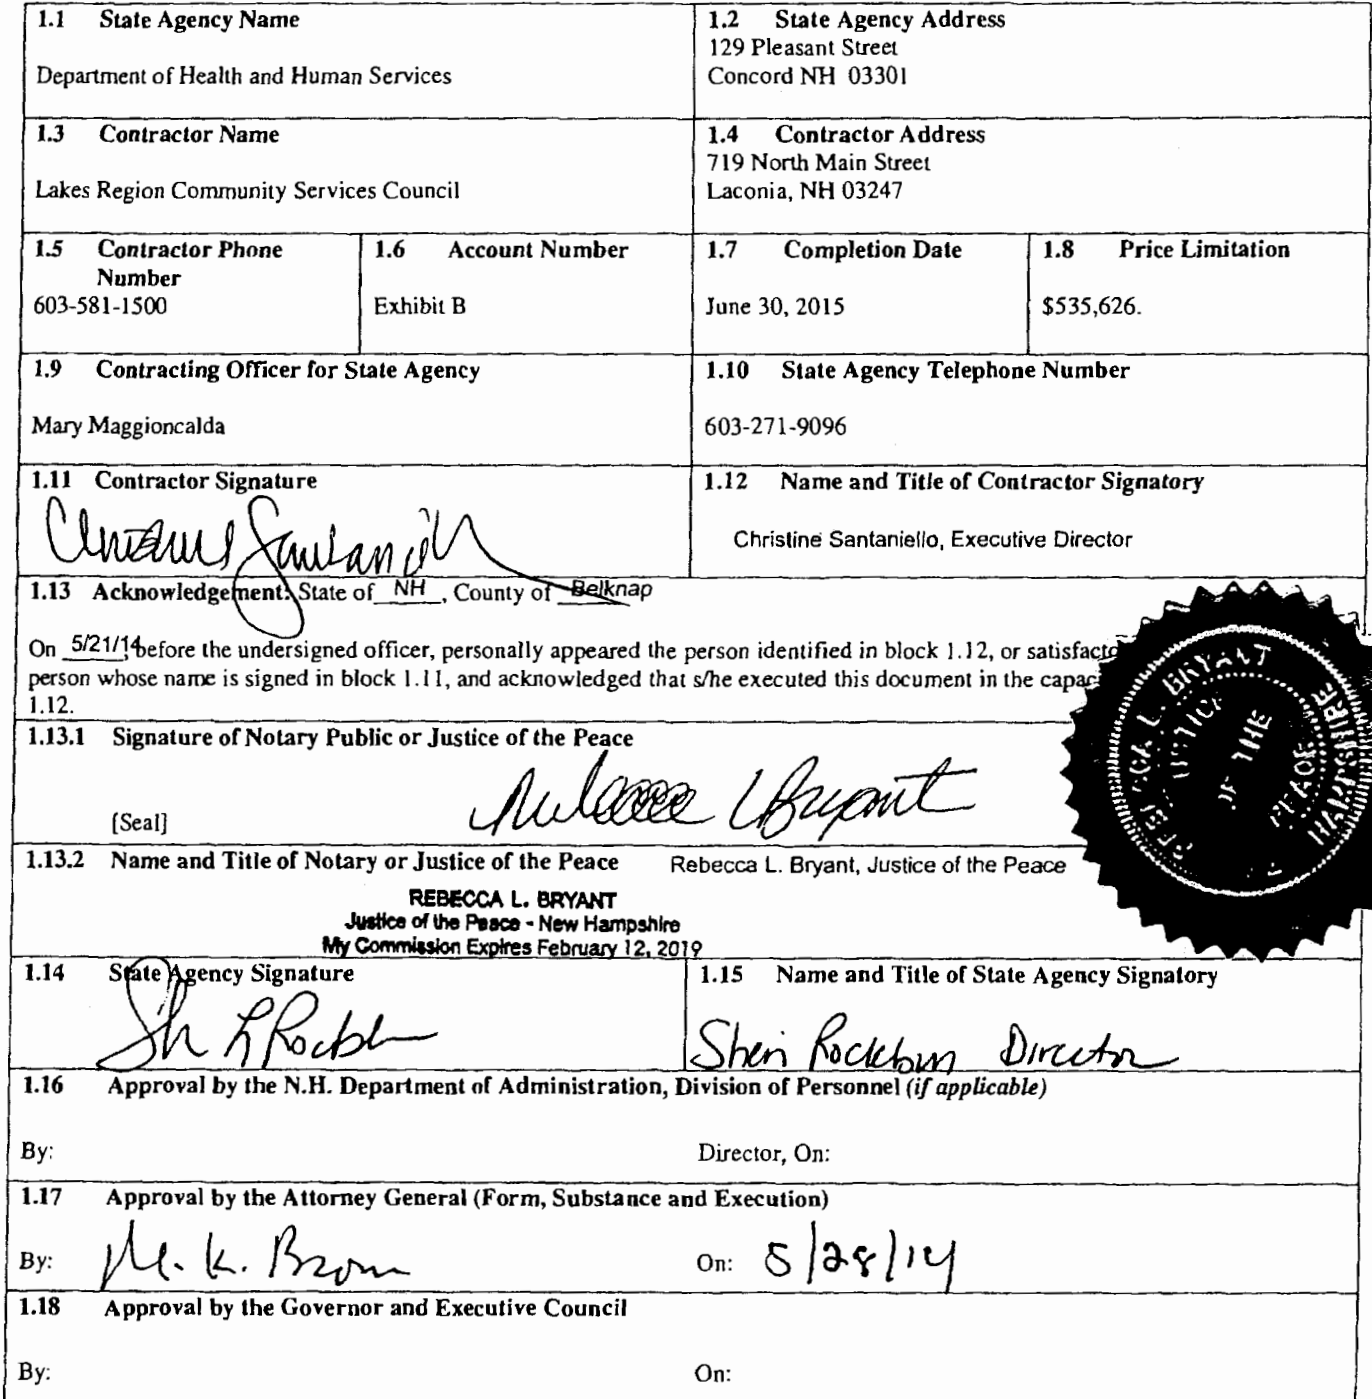 1.1 State Agency Name
Department of Health and Human Services
1.2 State Agency Address
129 Pleasant Street
Concord NH 03301
1.3 Contractor Name
Lakes Region Community Services Council
1.4 Contractor Address
719 North Main Street
Laconia, NH 03247
1.5 Contractor Phone
Number
603-581-1500
1.6 Account Number
Exhibit B
1.7 Completion Date
June 30, 2015
1.8 Price Limitation
$535,626.
1.9 Contracting Officer for State Agency
Mary Maggioncalda
1.10 State Agency Telephone Number
603-271-9096
1.11 Contractor Signature
Christine Santaniello
1.12 Name and Title of Contractor Signatory
Christine Santaniello, Executive Director
1.13 Acknowledgement: State of NH, County of Belknap
On 5/21/14, before the undersigned officer, personally appeared the person identified in block 1.12, or satisfacto
person whose name is signed in block 1.11, and acknowledged that s/he executed this document in the capac
1.12.
1.13.1 Signature of Notary Public or Justice of the Peace
Rebecca L Bryant
[Seal]
L. BRYANT
OF THE
PEACE
HAMPSHIRE
1.13.2 Name and Title of Notary or Justice of the Peace Rebecca L. Bryant, Justice of the Peace
REBECCA L. BRYANT
Justice of the Peace - New Hampshire
My Commission Expires February 12, 2019
1.14 State Agency Signature
1.15 Name and Title of State Agency Signatory
Sheri Rockburn Director
1.16 Approval by the N.H. Department of Administration, Division of Personnel (if applicable)
By: Director, On:
1.17 Approval by the Attorney General (Form, Substance and Execution)
By: M. K. Brown On: 5/28/14
1.18 Approval by the Governor and Executive Council
By: On: